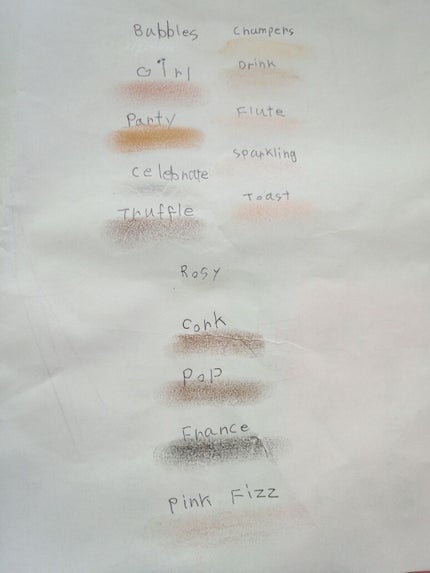 Bubbles
Girl
Party
Celebrate
Truffle
Champers
Drink
Flute
Sparkling
Toast
Rosy
Cork
Pop
France
Pink Fizz